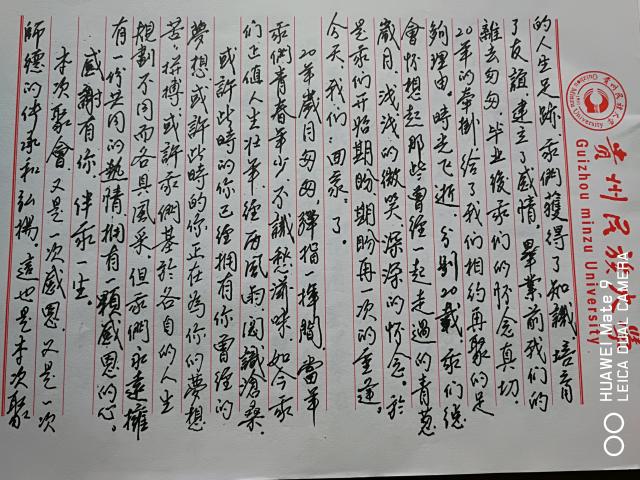 贵州民族大学
Guizhou minzu University
的人生足跡，我們獲得了知識，培育
了友誼，建立了感情。畢業前我們的
離去匆匆，毕业後我们的怀念真切.
20年的牵掛，给了我们相約再聚的足
夠理由。時光飞逝，分别20载，我们總
會怀想起那些曾经一起走過的青葱
歲月，浅浅的微笑，深深的怀念。於
是我们开始期盼，期盼再一次的重逢。
今天，我们：回家了。
20年歲月匆匆，彈指一揮間，當年
我們青春年少，不識愁滋味，如今我
们正值人生壮年，经历風雨，阅識滄桑。
或許此時的你已經擁有你曾經的
夢想，或許此時的你正在為你的夢想
苦苦拼搏，或許我們基於各自的人生
規劃不同而各具風采，但我們永遠擁
有一份共同的熱情，擁有一顆感恩的心。
感謝有你，伴我一生。
本次聚會，又是一次感恩，又是一次
師德的传承和弘揚。這也是本次聚
HUAWEI Mate 9
LEICA DUAL CAMERA